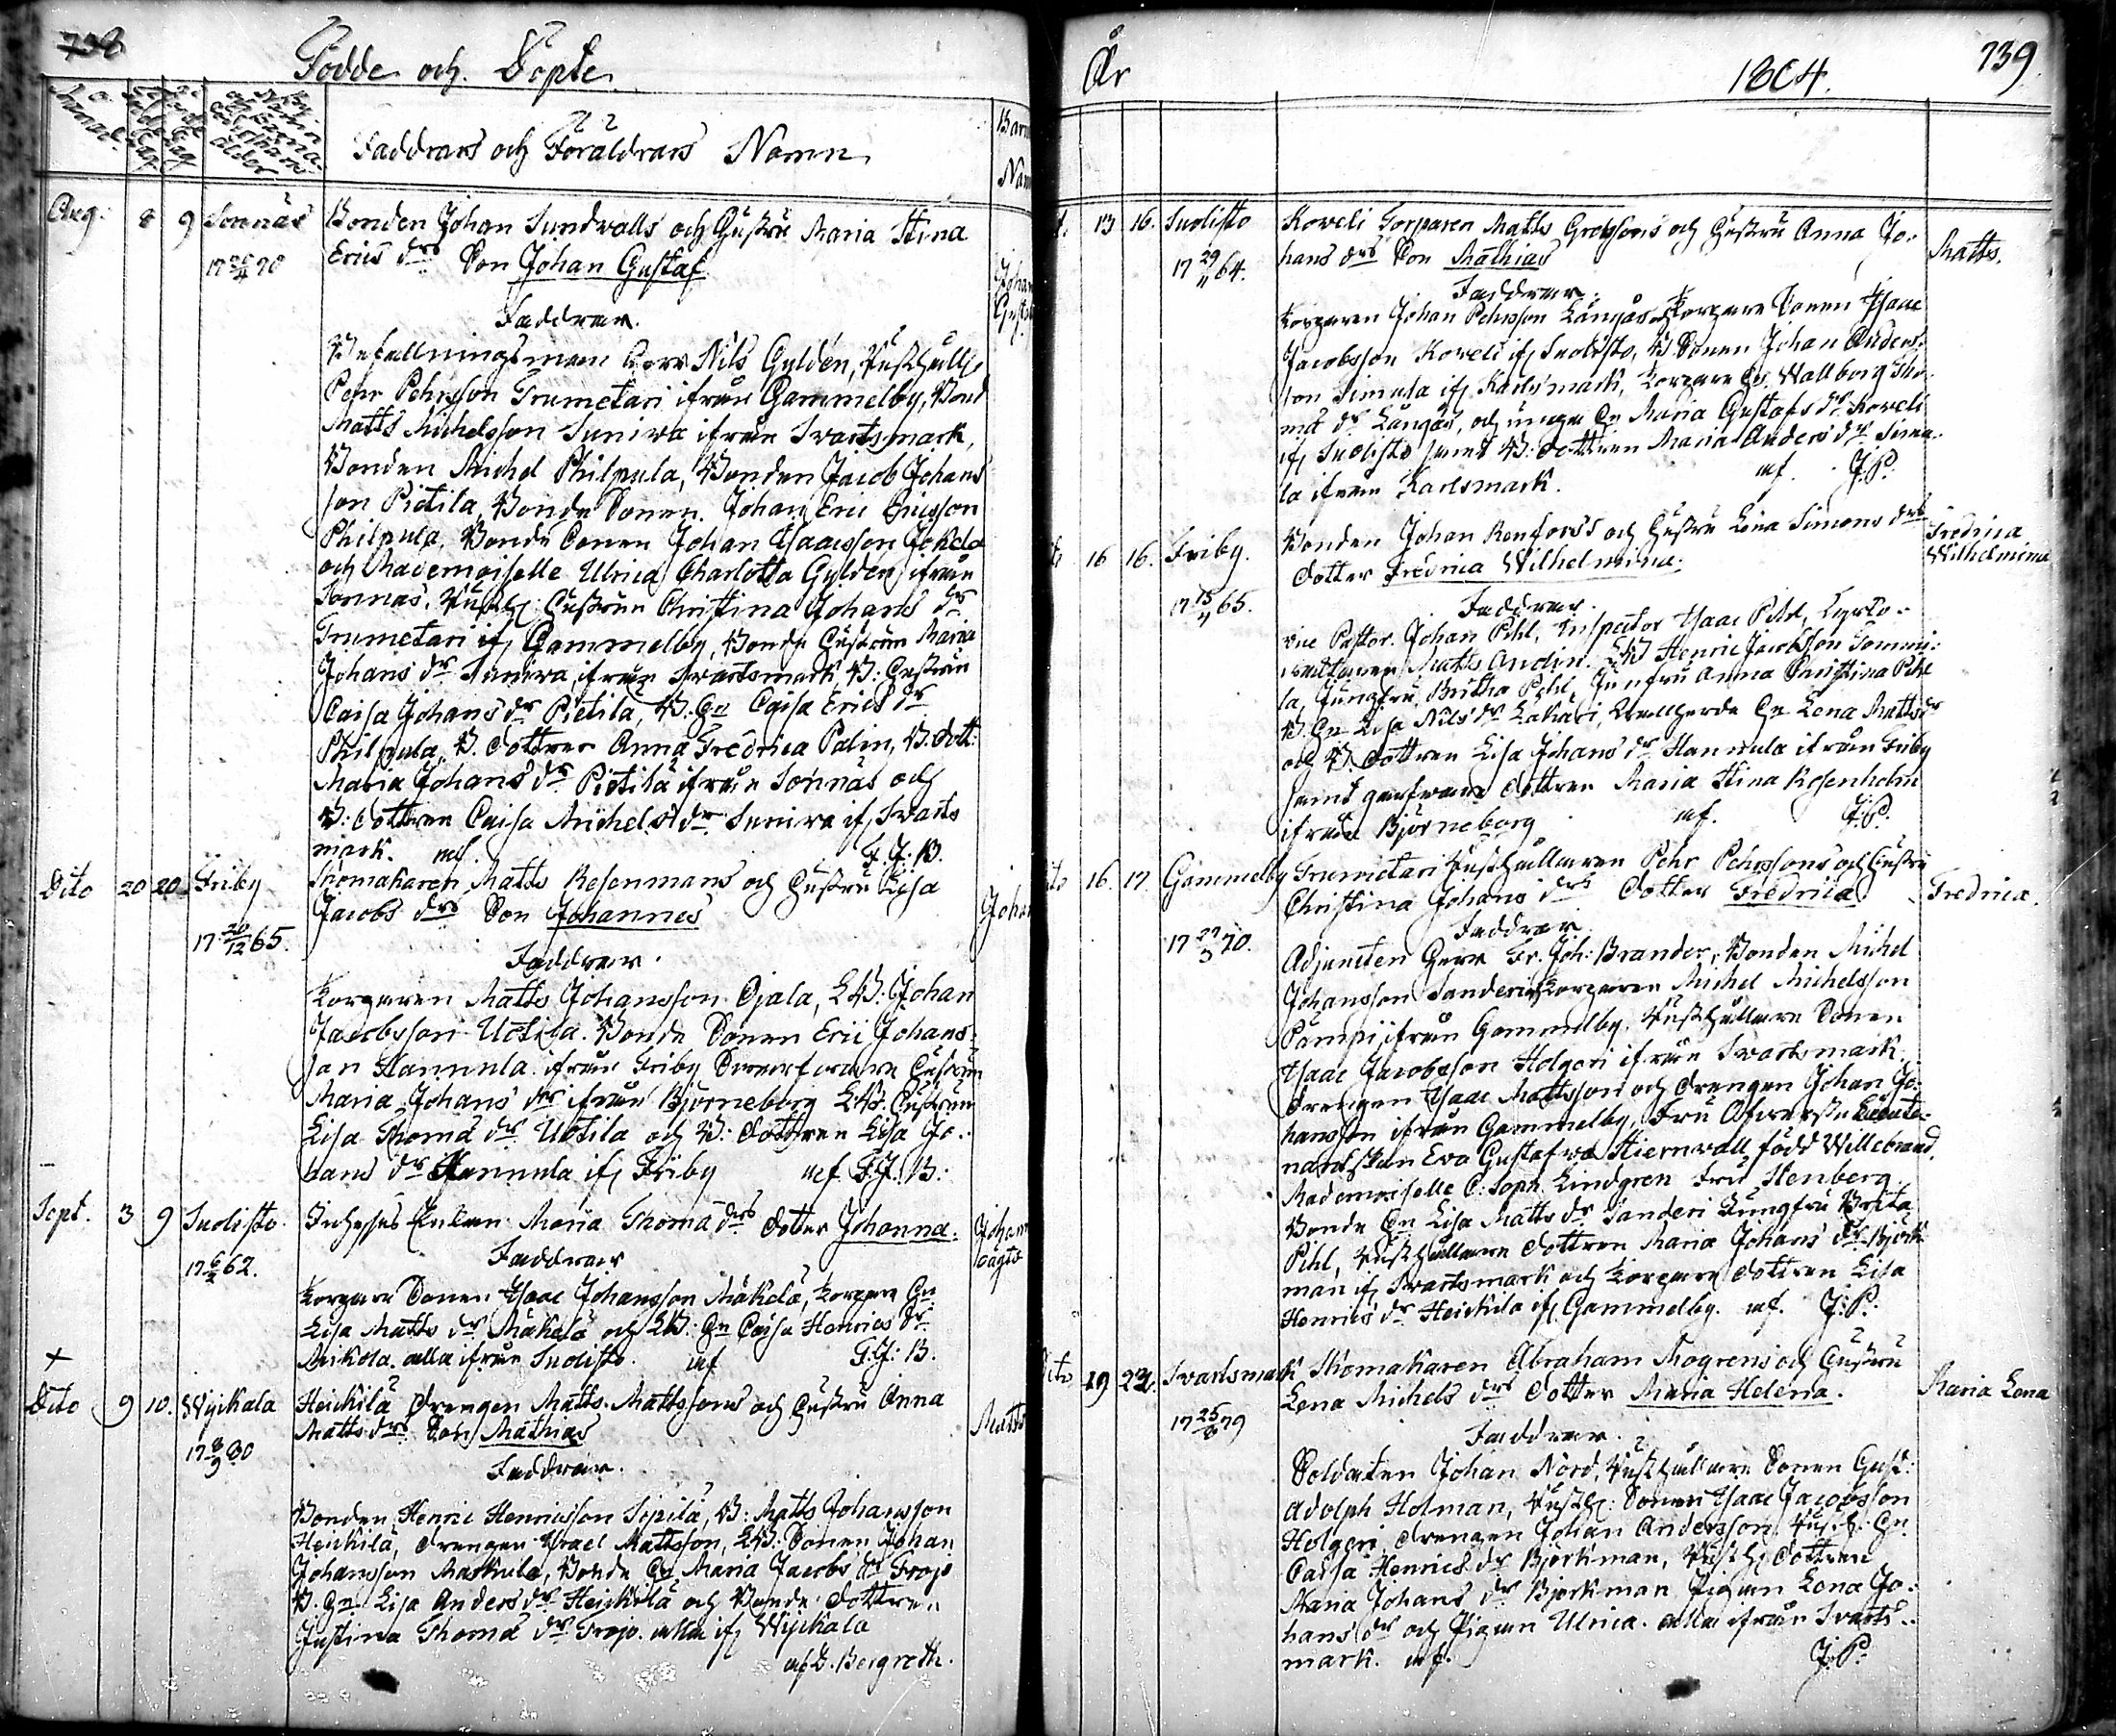 738
Födde och Döpte
Faddrars och Föräldrars Namn
Barn
Nam
Aug. 8 9 Sonnäs
Bonden Johan Sundvalls och Hustru Maria Stina
Erics drs Son Johan Gustaf
1770
Johan
Gust
Faddrar.
Befallningsman Herr Nils Gyldén, Rusthåll
Pehr Pehrsson Trumetari ifrån Gammelby, Bond
Matts Michelsson Suniwa ifrån Svartsmark,
Bonden Michel Philpula, Bonden Jacob Johans
son Pietila, Bonde Sonen Johan Eric Ericsson
Philpula, Bonde Sonen Johan Isaacsson Jokela
och Mademoiselle Ulrica Charlotta Gylden ifrån
Sonnäs. Rusth: Hustrun Christina Johans dr
Trumetari if Gammelby, Bonde Hustrun Maria
Johans dr Suniwa, ifrån Svartsmark, B: Hustrun
Caisa Johans dr Pietila, B. Hn Caisa Erics dr
Philpula, B. Dottren Anna Fredrica Palin, B. Dott:
Maria Johans dr Pietilä ifrån Sonnäs och
B: Dottren Caisa Michels dr Suniwa if Svarts
mark. mf. F. J: B.
Dito 20 20 Friby
Skomakaren Matts Rosenmans och Hustru Lisa
Jacobs drs Son Johannes
Joha
17 20/12 65.
Faddrar.
Torparen Matts Johansson Ojala, LB: Johan
Jacobsson Uotila. Bonde Sonen Eric Johans-
son Hannula ifrån Friby Hustrun
Maria Johans dr ifrån Björneborg LB: Hustrun
Lisa Thoma dr Uotila och B: Dottren Lisa Jo-
hans dr Hannula if Friby mf F. J: B:
Sept. 3 9 Suolisto
Enkan Maria Thoma drs Dotter Johanna.
Johan
17 6/2 62.
Faddrar
Torpare Sonen Isaac Johansson Mäkelä, Torpare Hn
Lisa Matts dr Mäkelä och LB: Hn Caisa Henrics dr
Mikola alla ifrån Suolisto. mf F: J: B.
+
Dito 9 10. Wyikala
Heickilä Drengen Matts Mattssons och Hustru Anna
Matts drs Son Mathias
Matts
17 8/9 80
Faddrar.
Bonden Henric Henricsson Sipilä, B: Matts Johansson
Heickilä, Drengen Israel Mattsson, LB: Sonen Johan
Johansson Maskula, Bonde Hn Maria Jacobs dr Frojo
B. Hn Lisa Anders dr Heickilä och Bonde Dottren
Justina Thoma dr Frojo. alla if Wyikala
mf G. Bergroth.
År 1804. 739
13 16. Suolisto
Koveli Torparen Matts Gretssons och Hustru Anna Jo-
hans drs Son Mathias
Matts.
17 29/11 64.
Faddrar.
Torparen Johan Pehrsson Långås Torpare Sonen Isaac
Jacobsson Koveli if Suolisto, B Sonen Johan Anders-
son Simula if Karlsmark, Torpare Hn Wallborg Tho-
ma dr Långås, och unga Hn Maria Gustafs dr Koveli
if Suolisto samt B: Dottren Maria Anders dr Simu-
la ifrån Karlsmark. mf. J: P.
16 16. Friby.
Bonden Johan Renforss och Hustru Lena Simons drs
Dotter Fredrica Wilhelmina.
Fredrica
Wilhelmina
17 13/11 65.
Faddrar.
vice Pastor Johan Pihl, Inspector Isaac Pihl,
Matts Andin. LB Henric Jacobsson Tommi-
la, Jungfru Britha Pihl, Junfru Anna Christina Pihl
B. Hn Lisa Nils dr Lakari, Hn Lena Matts dr
och B. Dottren Lisa Johans dr Hannula ifrån Friby
samt Dottren Maria Stina Rosenholm
ifrån Björneborg mf. J: P.
16. 17. Gammelby
Trumetari Rusthållaren Pehr Pehrssons och Hustru
Christina Johans drs Dotter Fredrica
Fredrica.
17 27/3 70.
Faddrar
Adjuncten Herr Fr. Joh: Brander, Bonden Michel
Johansson Sanderi Torparen Michel Michelsson
Pämpi ifrån Gammelby. Rusthållare Sonen
Isaac Jacobsson Holgeri ifrån Svartsmark.
Drengen Isaac Mattsson och Drengen Johan Jo-
hansson ifrån Gammelby, Fru Öfverste Lieute-
nantskan Eva Gustafva Stiernvall född Willebrand.
Mademoiselle C: Soph. Lindgren Fru Stenberg
Bonde Hn Lisa Matts dr Sanderi Jungfru Brita
Pihl, Rusthållare Dottren Maria Johans dr Björk-
man if Svartsmark och Torpare Dottren Lisa
Henrics dr Heickila if Gammelby. mf. J: P.
19 22. Svartsmark
Skomakaren Abraham Mogrens och Hustru
Lena Michels drs Dotter Maria Helena.
Maria Lena
17 25/8 79
Faddrar.
Soldaten Johan Nord, Rusthållare Sonen Gust:
Adolph Holman, Rusth: Sonen Isaac Jacobsson
Holgeri, Drengen Johan Andersson Rusth: Hn
Caisa Henrics dr Björkman, Rusth: Dottren
Maria Johans dr Björkman Pigan Lena Jo-
hans dr och Pigan Ulrica. alla ifrån Svarts-
mark. mf. J: P.